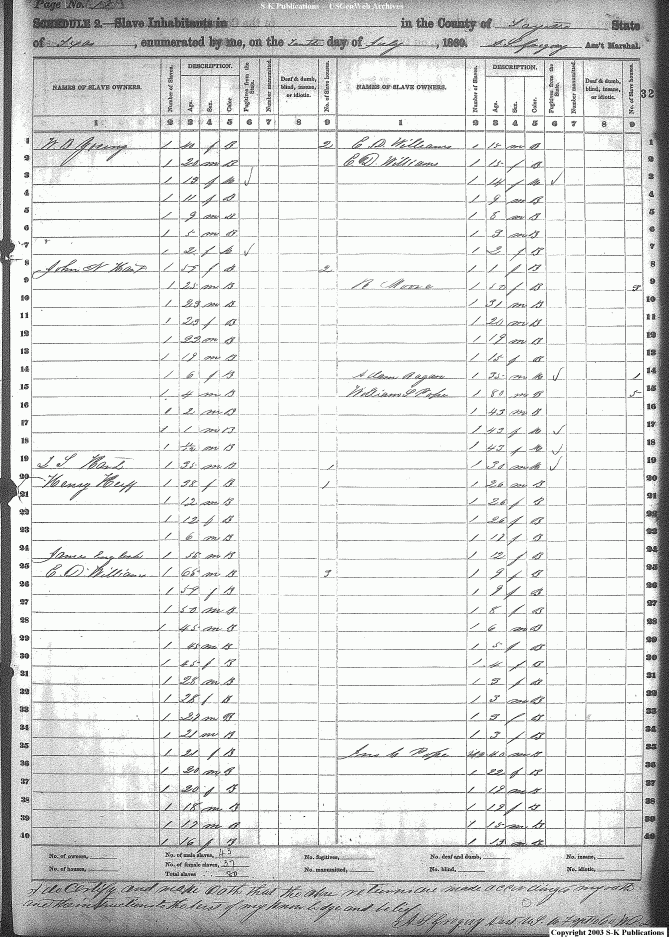 S-K Publications -- USGenWeb Archives
Page No.
SCHEDULE 2.—Slave Inhabitants in in the County of Fayette State
of Texas, enumerated by me, on the tenth day of July, 1860. Ass't Marshal.
32
NAMES OF SLAVE OWNERS. Number of Slaves. DESCRIPTION. Age. Sex. Color. Fugitives from the State. Number manumitted. Deaf & dumb, blind, insane, or idiotic. No. of Slave houses. NAMES OF SLAVE OWNERS. Number of Slaves. DESCRIPTION. Age. Sex. Color. Fugitives from the State. Number manumitted. Deaf & dumb, blind, insane, or idiotic. No. of Slave houses.
1 2 3 4 5 6 7 8 9 1 2 3 4 5 6 7 8 9
1 1 f B 2 E. D. Williams 1 15 m B 1
2 1 m B E D Williams 1 15 f B 2
3 1 13 f M 1 14 f M 3
4 1 11 f B 1 9 m B 4
5 1 9 m 1 m B 5
6 1 5 m B 1 3 m B 6
7 1 2 f M 1 2 f B 7
8 John W 1 55 f B 2 1 1 f B 8
9 1 25 m B R Moore 1 50 f B 9
10 1 23 m B 1 31 m B 10
11 1 23 f B 1 20 m B 11
12 1 22 m B 1 19 m B 12
13 1 19 m B 1 15 f B 13
14 1 6 f B Adam Ragan 1 35 m M 1 14
15 1 4 m B William S Pope 1 80 m B 5 15
16 1 2 m B 1 43 m B 16
17 1 1 m B 1 43 f M 17
18 1 m B 1 43 f M 18
19 1 35 m B 1 1 30 m M 19
20 Henry 1 38 f B 1 1 26 m B 20
21 1 12 m B 1 26 f B 21
22 1 12 f B 1 26 f B 22
23 1 6 m B 1 17 f B 23
24 James English 1 55 m B 1 12 f B 24
25 E. D. Williams 1 65 m B 3 1 9 f B 25
26 1 59 f B 1 9 f B 26
27 1 50 m B 1 8 f B 27
28 1 45 m B 1 6 m B 28
29 1 45 m B 1 5 f B 29
30 1 45 f B 1 4 f B 30
31 1 28 m B 1 3 f B 31
32 1 28 f B 1 3 m B 32
33 1 22 m B 1 3 f B 33
34 1 21 m B 1 3 f B 34
35 1 21 f B Pope 40 m B 35
36 1 20 m B 1 22 f B 36
37 1 20 f B 1 19 m B 37
38 1 18 m B 1 19 f B 38
39 1 17 m B 1 15 m B 39
40 1 16 f B 1 13 m B 40
No. of owners, No. of male slaves, 43 No. fugitives, No. deaf and dumb, No. insane,
No. of houses, No. of female slaves, 37 No. manumitted, No. blind, No. idiotic,
Total slaves 80
I do certify and make oath that the above returns are made according to my oath
and the instructions to the best of my knowledge and belief
Copyright 2003 S-K Publications